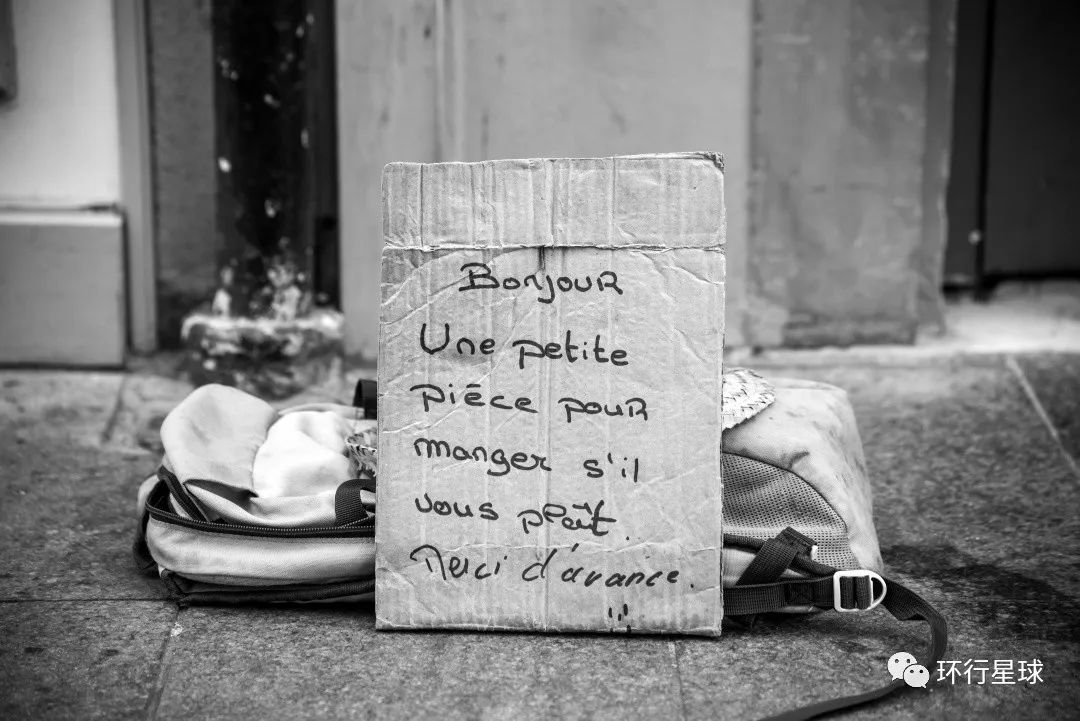 Bonjour
Une petite
pièce pour
manger s'il
vous plaît.
Merci d'avance.
环行星球